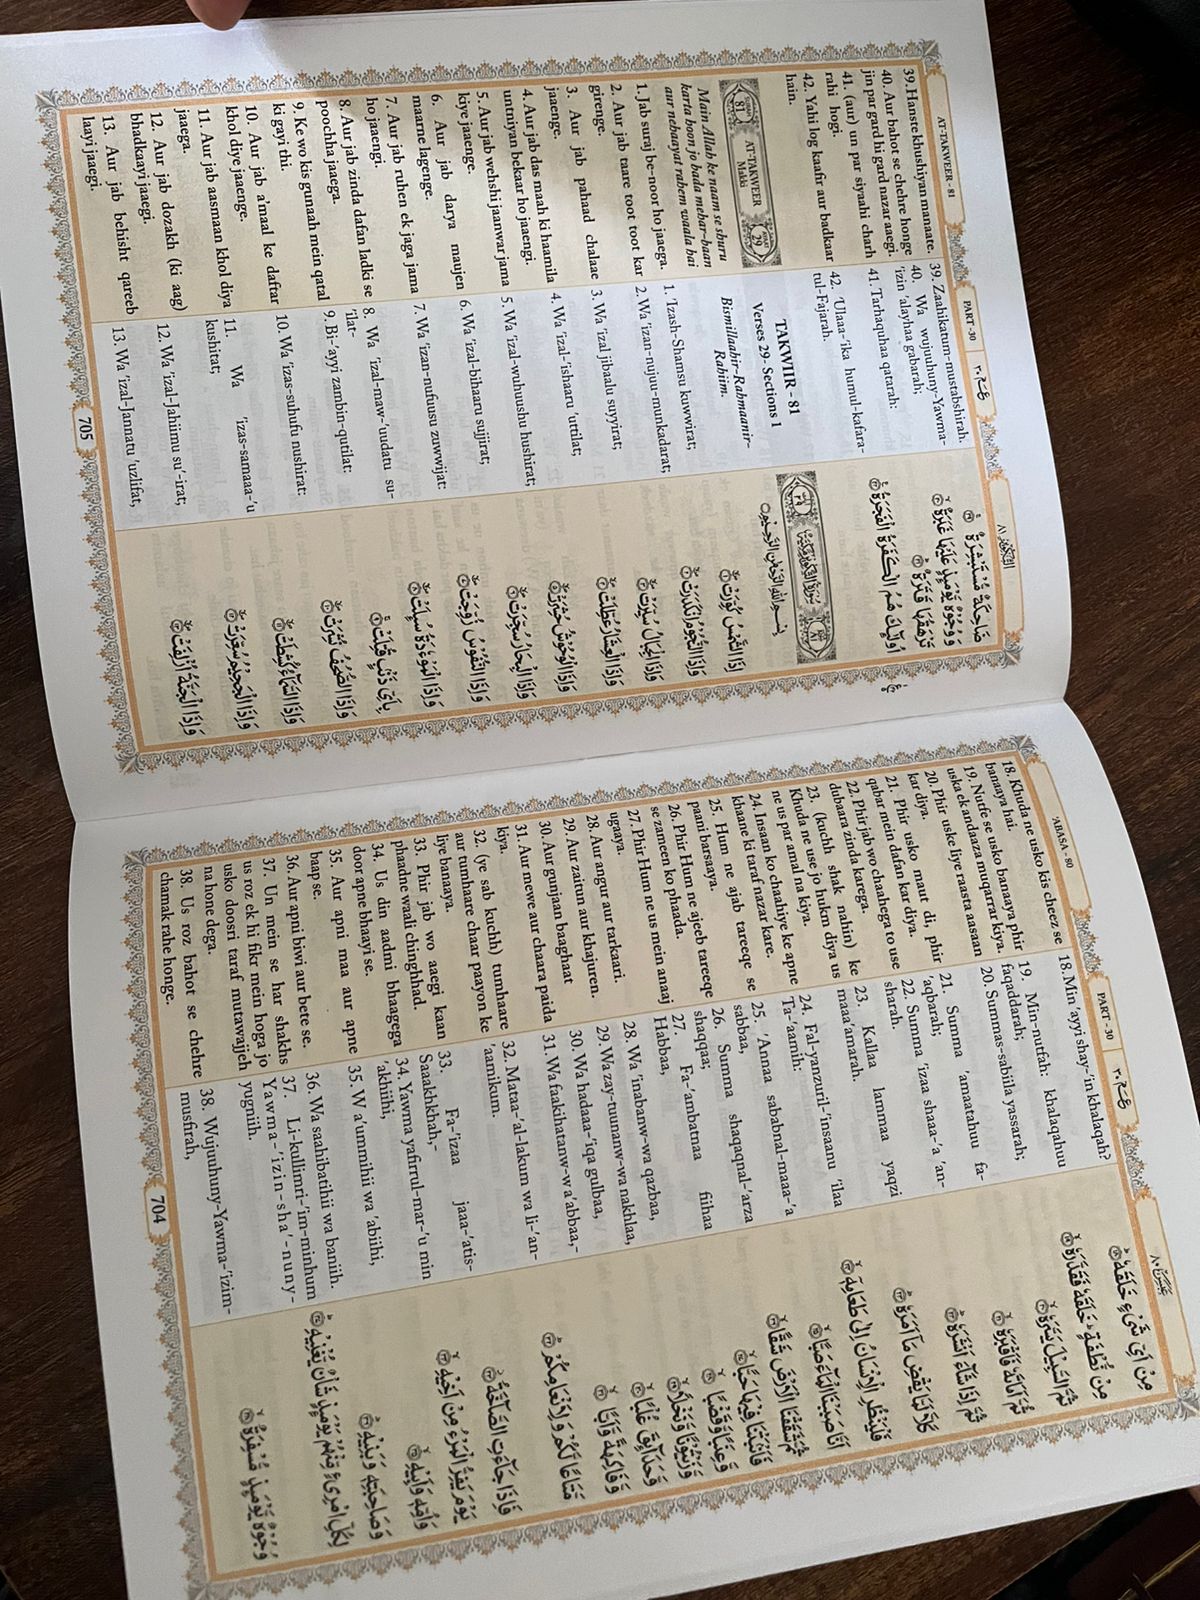 'ABASA - 80
PART - 30
عَبَسَ ٨٠
18. Khuda ne usko kis cheez se
banaaya hai.
19. Nutfe se usko banaaya phir
uska ek andaaza muqarrar kiya.
20. Phir uske liye raasta aasaan
kar diya.
21. Phir usko maut di, phir
qabar mein dafan kar diya.
22. Phir jab wo chaahega to use
dubaara zinda karega.
23. (kuchh shak nahin) ke
Khuda ne use jo hukm diya us
ne us par amal na kiya.
24. Insaan ko chaahiye ke apne
khaane ki taraf nazar kare.
25. Hum ne ajab tareeqe se
paani barsaaya.
26. Phir Hum ne ajeeb tareeqe
se zameen ko phaada.
27. Phir Hum ne us mein anaaj
ugaaya.
28. Aur angur aur tarkaari.
29. Aur zaitun aur khajuren.
30. Aur gunjaan baaghaat
31. Aur mewe aur chaara paida
kiya.
32. (ye sab kuchh) tumhaare
aur tumhaare chaar paayon ke
liye banaaya.
33. Phir jab wo aaegi kaan
phaadne waali chinghhad.
34. Us din aadmi bhaagega
door apne bhaayi se.
35. Aur apni maa aur apne
baap se.
36. Aur apni biwi aur bete se.
37. Un mein se har shakhs
us roz ek hi fikr mein hoga jo
usko doosri taraf mutawajjeh
na hone dega.
38. Us roz bahot se chehre
chamak rahe honge.
18. Min 'ayyi shay-'in khalaqah?
19. Min-nutfah: khalaqahuu
faqaddarah;
20. Summas-sabiila yassarah;
21. Summa 'amaatahuu fa-
'aqbarah;
22. Summa 'izaa shaaa-'a 'an-
sharah.
23. Kallaa lammaa yaqzi
maaa'amarah.
24. Fal-yanzuril-'insaanu 'ilaa
Ta-'aamih:
25. 'Annaa sababnal-maaa-'a
sabbaa,
26. Summa shaqaqnal-'arza
shaqqaa;
27. Fa-'ambatnaa fiihaa
Habbaa,
28. Wa 'inabanw-wa qazbaa,
29. Wa zay-tuunanw-wa nakhlaa,
30. Wa hadaa-'iqa gulbaa,
31. Wa faakihatanw-w a'abbaa,-
32. Mataa-'al-lakum wa li-'an-
'aamikum.
33. Fa-'izaa jaaa-'atis-
Saaakhkhah,-
34. Yawma yafirrul-mar-'u min
'akhiihi,
35. W a'ummihii wa 'abiihi,
36. Wa saahibatihii wa baniih.
37. Li-kullimri-'im-minhum
Yawma-'izin-sha'-nuny-
yugniih.
38. Wujuuhuny-Yawma-'izim-
musfirah,
مِنْ اَيِّ شَيْءٍ خَلَقَهٗ
مِنْ نُّطْفَةٍ ۭ خَلَقَهٗ فَقَدَّرَهٗ
ثُمَّ السَّبِيْلَ يَسَّرَهٗ
ثُمَّ اَمَاتَهٗ فَاَقْبَرَهٗ
ثُمَّ اِذَا شَآءَ اَنْشَرَهٗ
كَلَّا لَمَّا يَقْضِ مَآ اَمَرَهٗ
فَلْيَنْظُرِ الْاِنْسَانُ اِلٰى طَعَامِهٖ
اَنَّا صَبَبْنَا الْمَآءَ صَبًّا
ثُمَّ شَقَقْنَا الْاَرْضَ شَقًّا
فَاَنْۢبَتْنَا فِيْهَا حَبًّا
وَّعِنَبًا وَّقَضْبًا
وَّزَيْتُوْنًا وَّنَخْلًا
وَّحَدَآئِقَ غُلْبًا
وَّفَاكِهَةً وَّاَبًّا
مَّتَاعًا لَّكُمْ وَلِاَنْعَامِكُمْ
فَاِذَا جَآءَتِ الصَّآخَّةُ
يَوْمَ يَفِرُّ الْمَرْءُ مِنْ اَخِيْهِ
وَاُمِّهٖ وَاَبِيْهِ
وَصَاحِبَتِهٖ وَبَنِيْهِ
لِكُلِّ امْرِئٍ مِّنْهُمْ يَوْمَئِذٍ شَاْنٌ يُّغْنِيْهِ
وُجُوْهٌ يَّوْمَئِذٍ مُّسْفِرَةٌ
704
AT-TAKWEER - 81
PART - 30
39. Hanste khushiyan manaate.
40. Aur bahot se chehre honge
jin par gard hi gard nazar aaegi.
41. (aur) un par siyaahi charh
rahi hogi.
42. Yahi log kaafir aur badkaar
hain.
81
AT-TAKWEER
Makki
29
Main Allah ke naam se shuru
karta hoon jo bada mehar-baan
aur nehaayat rahem waala hai
1. Jab suraj be-noor ho jaaega.
2. Aur jab taare toot toot kar
girenge.
3. Aur jab pahaad chalaae
jaaenge.
4. Aur jab das maah ki haamila
untniyan bekaar ho jaaengi.
5. Aur jab wehshi jaanwar jama
kiye jaaenge.
6. Aur jab darya maujen
maarne lagenge.
7. Aur jab ruhen ek jaga jama
ho jaaengi.
8. Aur jab zinda dafan ladki se
poochha jaaega.
9. Ke wo kis gunaah mein qatal
ki gayi thi.
10. Aur jab a'maal ke daftar
khol diye jaaenge.
11. Aur jab aasmaan khol diya
jaaega.
12. Aur jab dozakh (ki aag)
bhadkaayi jaaegi.
13. Aur jab behisht qareeb
laayi jaaegi.
39. Zaahikatum-mustabshirah.
40. Wa wujuuhuny-Yawma-
'izin 'alayhaa gabarah;
41. Tarhaquhaa qatarah:
42. 'Ulaaa-'ika humul-kafara-
tul-Fajarah.
TAKWIIR - 81
Verses 29. Sections 1
Bismillaahir-Rahmaanir-
Rahiim.
1. 'Izash-Shamsu kuwwirat;
2. Wa 'izan-nujuu-munkadarat;
3. Wa 'izal jibaalu suyyirat;
4. Wa 'izal-'ishaaru 'uttilat;
5. Wa 'izal-wuhuushu hushirat;
6. Wa 'izal-bihaaru sujjirat;
7. Wa 'izan-nufuusu zuwwijat:
8. Wa 'izal-maw-'uudatu su-
'ilat-
9. Bi-'ayyi zambin-qutilat:
10. Wa 'izas-suhufu nushirat:
11. Wa 'izas-samaaa-'u
kushitat;
12. Wa 'izal-Jahiimu su'-irat;
13. Wa 'izal-Jannatu 'uzlifat,
ضَاحِكَةٌ مُّسْتَبْشِرَةٌ
وَوُجُوْهٌ يَّوْمَئِذٍ عَلَيْهَا غَبَرَةٌ
تَرْهَقُهَا قَتَرَةٌ
اُولٰٓئِكَ هُمُ الْكَفَرَةُ الْفَجَرَةُ
بِسْمِ اللّٰهِ الرَّحْمٰنِ الرَّحِيْمِ
اِذَا الشَّمْسُ كُوِّرَتْ
وَاِذَا النُّجُوْمُ انْكَدَرَتْ
وَاِذَا الْجِبَالُ سُيِّرَتْ
وَاِذَا الْعِشَارُ عُطِّلَتْ
وَاِذَا الْوُحُوْشُ حُشِرَتْ
وَاِذَا الْبِحَارُ سُجِّرَتْ
وَاِذَا النُّفُوْسُ زُوِّجَتْ
وَاِذَا الْمَوْءٗدَةُ سُئِلَتْ
بِاَيِّ ذَنْۢبٍ قُتِلَتْ
وَاِذَا الصُّحُفُ نُشِرَتْ
وَاِذَا السَّمَآءُ كُشِطَتْ
وَاِذَا الْجَحِيْمُ سُعِّرَتْ
وَاِذَا الْجَنَّةُ اُزْلِفَتْ
705